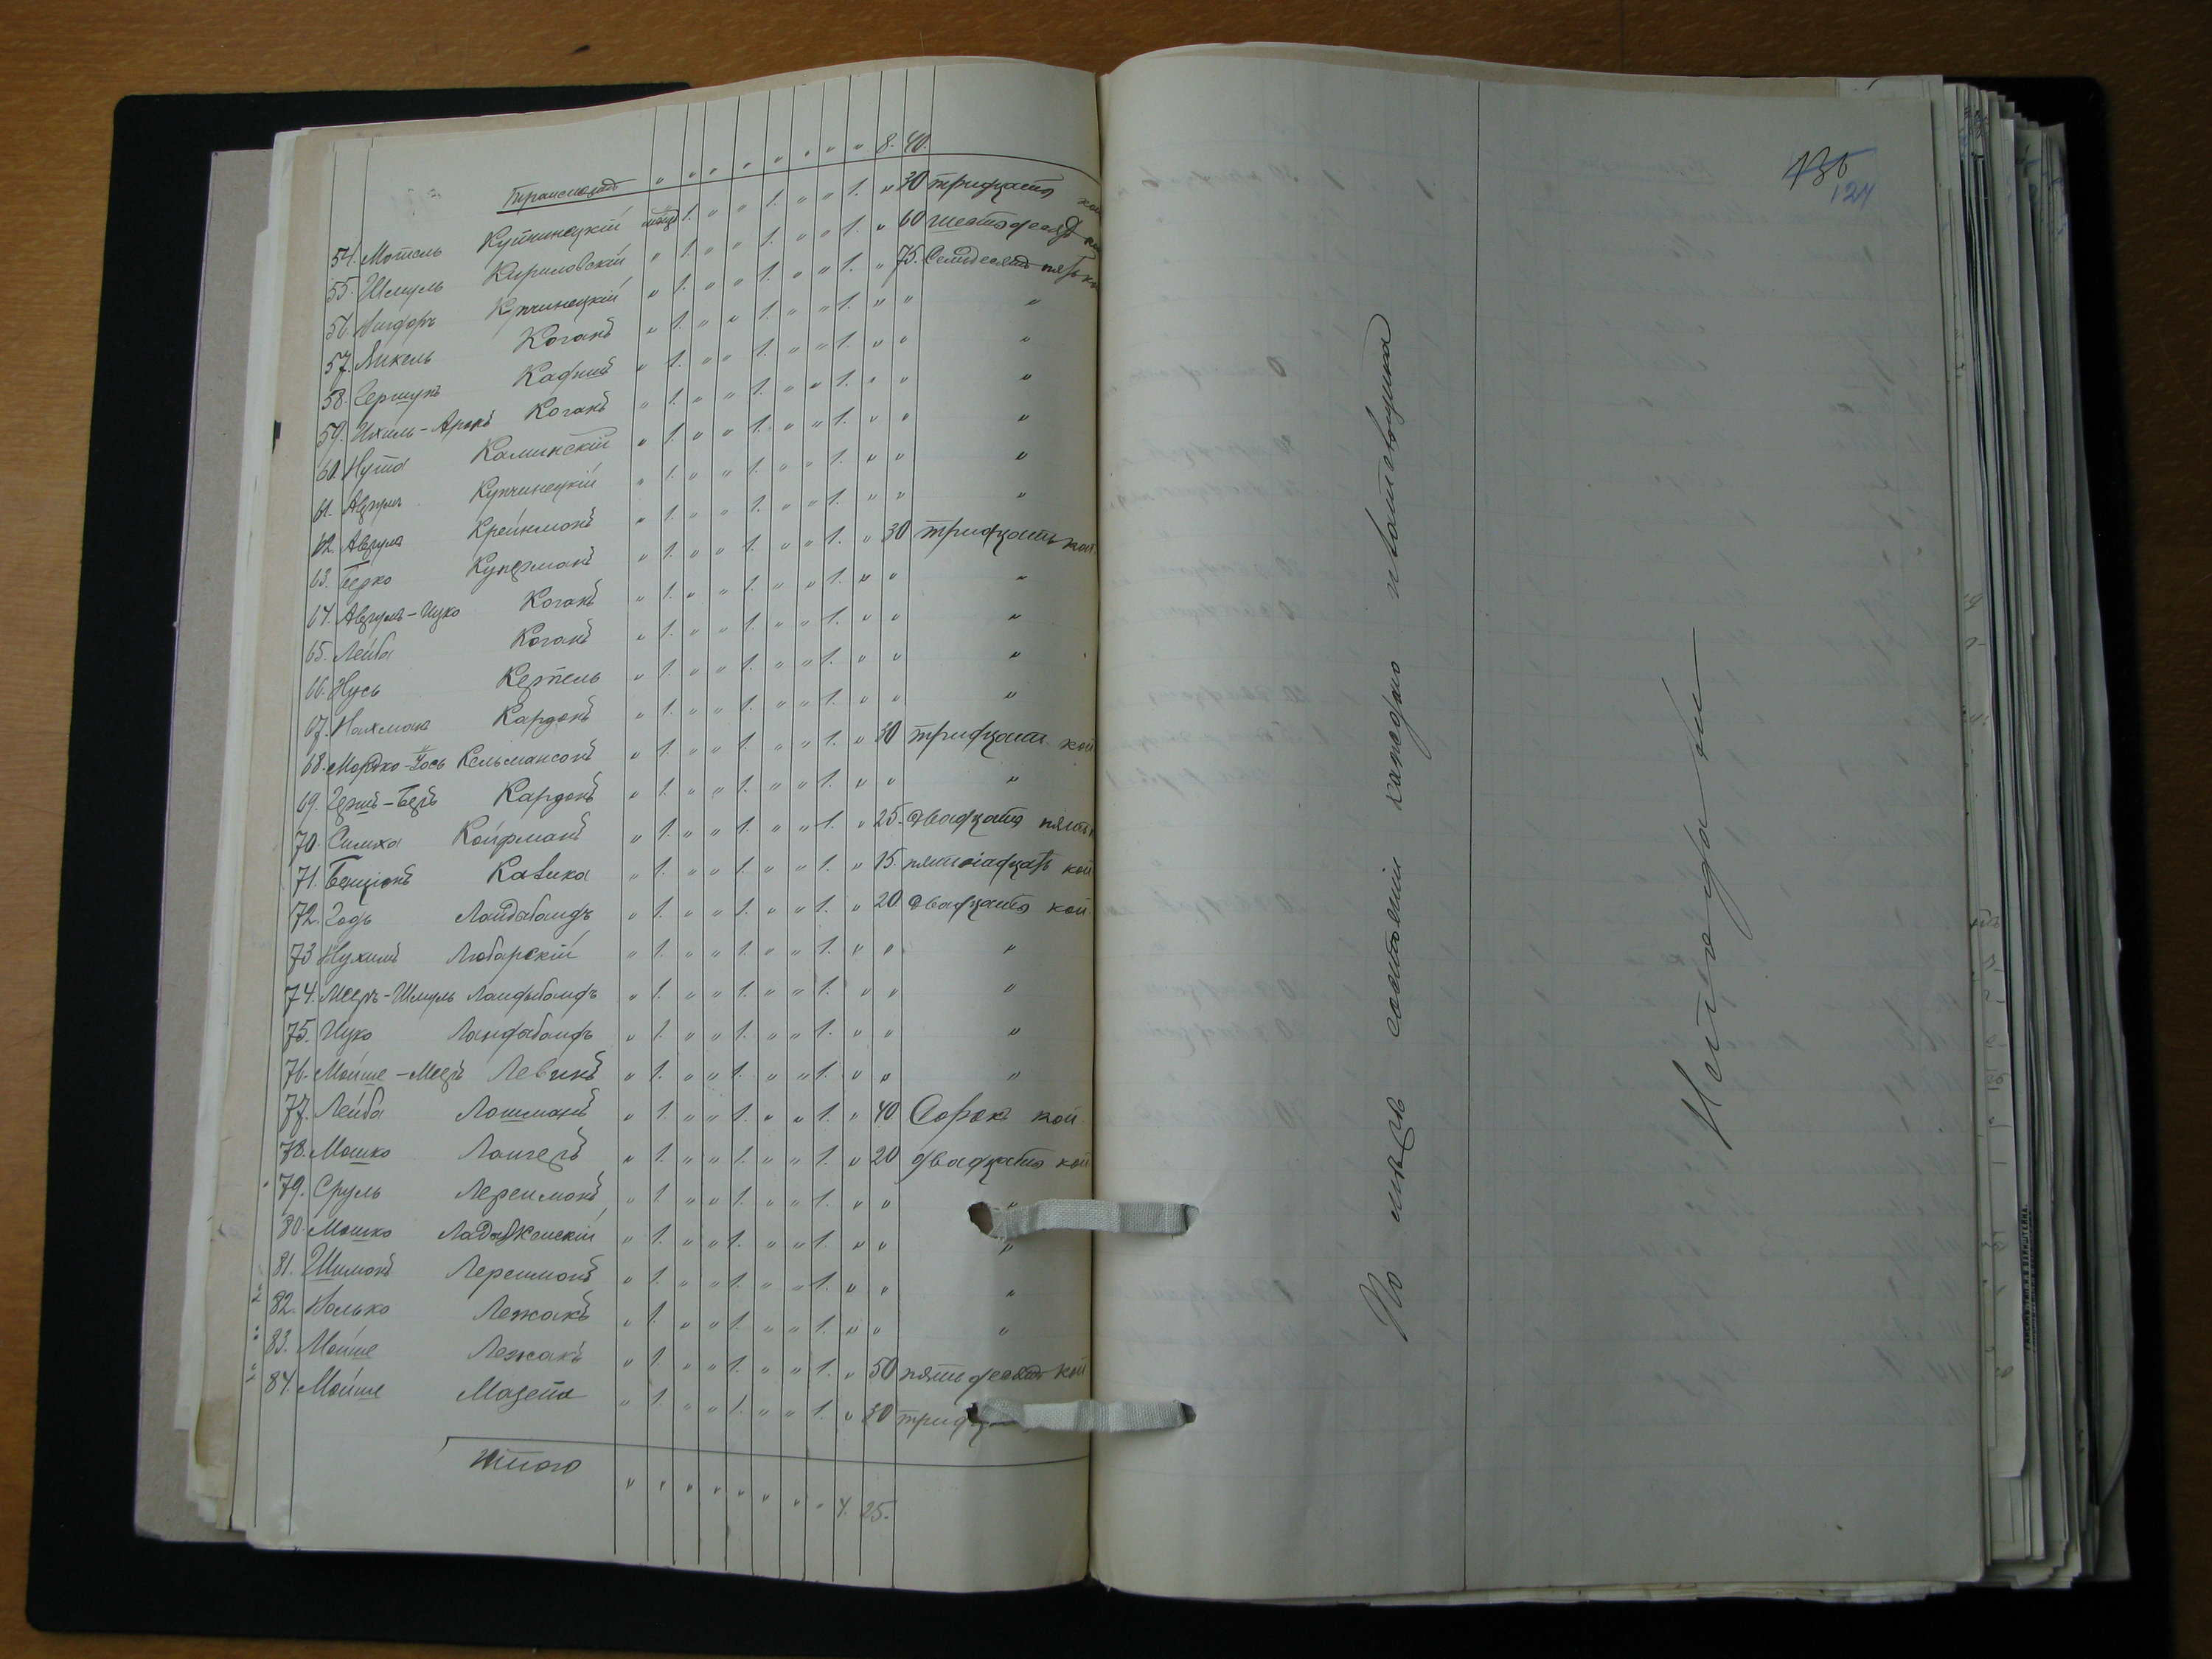 Транспортъ " " " " " " " " 8. 40.
54. Мотель Купчинецкій мѣщ. 1. " " 1. " " 1. " 30 тридцать коп
55. Шмуль Кириловскій " 1. " " 1. " " 1. " 60 шестьдесятъ ко
56. Нигдоръ Купчинецкій " 1. " " 1. " " 1. " 75. Семьдесятъ пять ко
57. Янкель Коганъ " 1. " " 1. " " 1. " " "
58. Гершунъ " 1. " " 1. " " 1. " " "
59. Ихиль-Аронъ Коганъ " 1. " " 1. " " 1. " " "
60. Нута Каминскій " 1. " " 1. " " 1. " " "
61. Аврумъ Купчинецкій " 1. " " 1. " " 1. " " "
62. Аврумъ Крейнманъ " 1. " " 1. " " 1. " " "
63. Берко Куперманъ " 1. " " 1. " " 1. " 30 тридцать коп.
64. Аврумъ-Ицко Коганъ " 1. " " 1. " " 1. " " "
65. Лейба Коганъ " 1. " " 1. " " 1. " " "
66. Нусь Кертель " 1. " " 1. " " 1. " " "
67. Нахманъ Кардонъ " 1. " " 1. " " 1. " " "
68. Мордко-Іось Кельмансонъ " 1. " " 1. " " 1. " 30 тридцать коп
69. Гершъ-Беръ Кардонъ " 1. " " 1. " " 1. " " "
70. Симха Койфманъ " 1. " " 1. " " 1. " 25. двадцать пять к
71. Бенціонъ Кавика " 1. " " 1. " " 1. " 15. пятнадцать коп
72. Годъ Ландабандъ " 1. " " 1. " " 1. " 20 двадцать коп.
73 Нухимъ Любарскій " 1. " " 1. " " 1. " " "
74. Мееръ-Шмуль Ландыбандъ " 1. " " 1. " " 1. " " "
75. Ицко Ландабандъ " 1. " " 1. " " 1. " " "
76. Мойше-Мееръ Левинъ " 1. " " 1. " " 1. " " "
77. Лейба Лошманъ " 1. " " 1. " " 1. " 40 Сорокъ коп.
78. Мошко Лангеръ " 1. " " 1. " " 1. " 20 двадцать коп
79. Сруль Лереимонъ " 1. " " 1. " " 1. " " "
80. Мошко " 1. " " 1. " " 1. " " "
81. Шимонъ Лереимонъ " 1. " " 1. " " 1. " " "
82. Волько Лежакъ " 1. " " 1. " " 1. " " "
83. Мойше Лежакъ " 1. " " 1. " " 1. " 50 пятьдесятъ коп
84. Мойше Мазепа " 1. " " 1. " " 1. " 30
Итого " " " " " " " " 4. 25.
124
По мѣрѣ состоянія каждаго плательщика